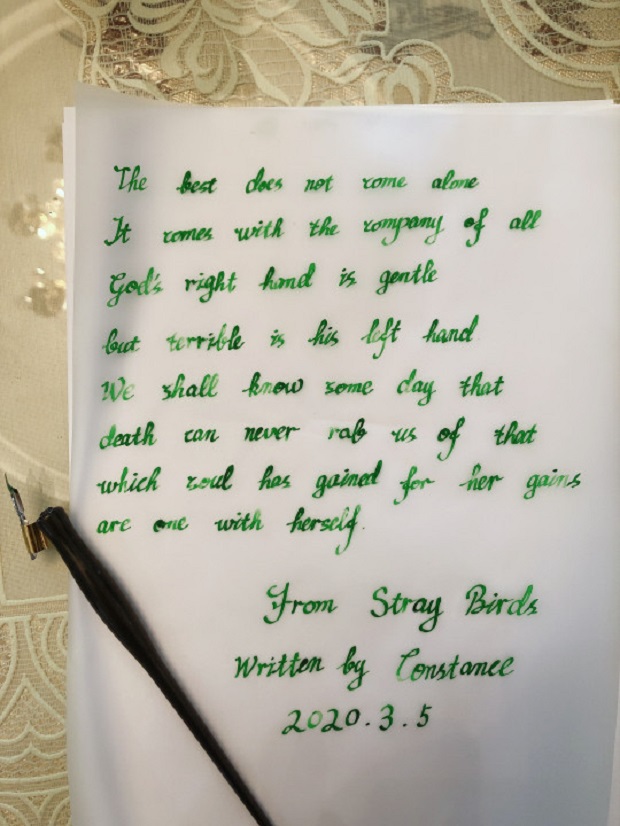 The best does not come alone
It comes with the company of all
God's right hand is gentle
but terrible is his left hand
We shall know some day that
death can never rob us of that
which soul has gained for her gains
are one with herself.
From Stray Birds
Written by Constance
2020.3.5